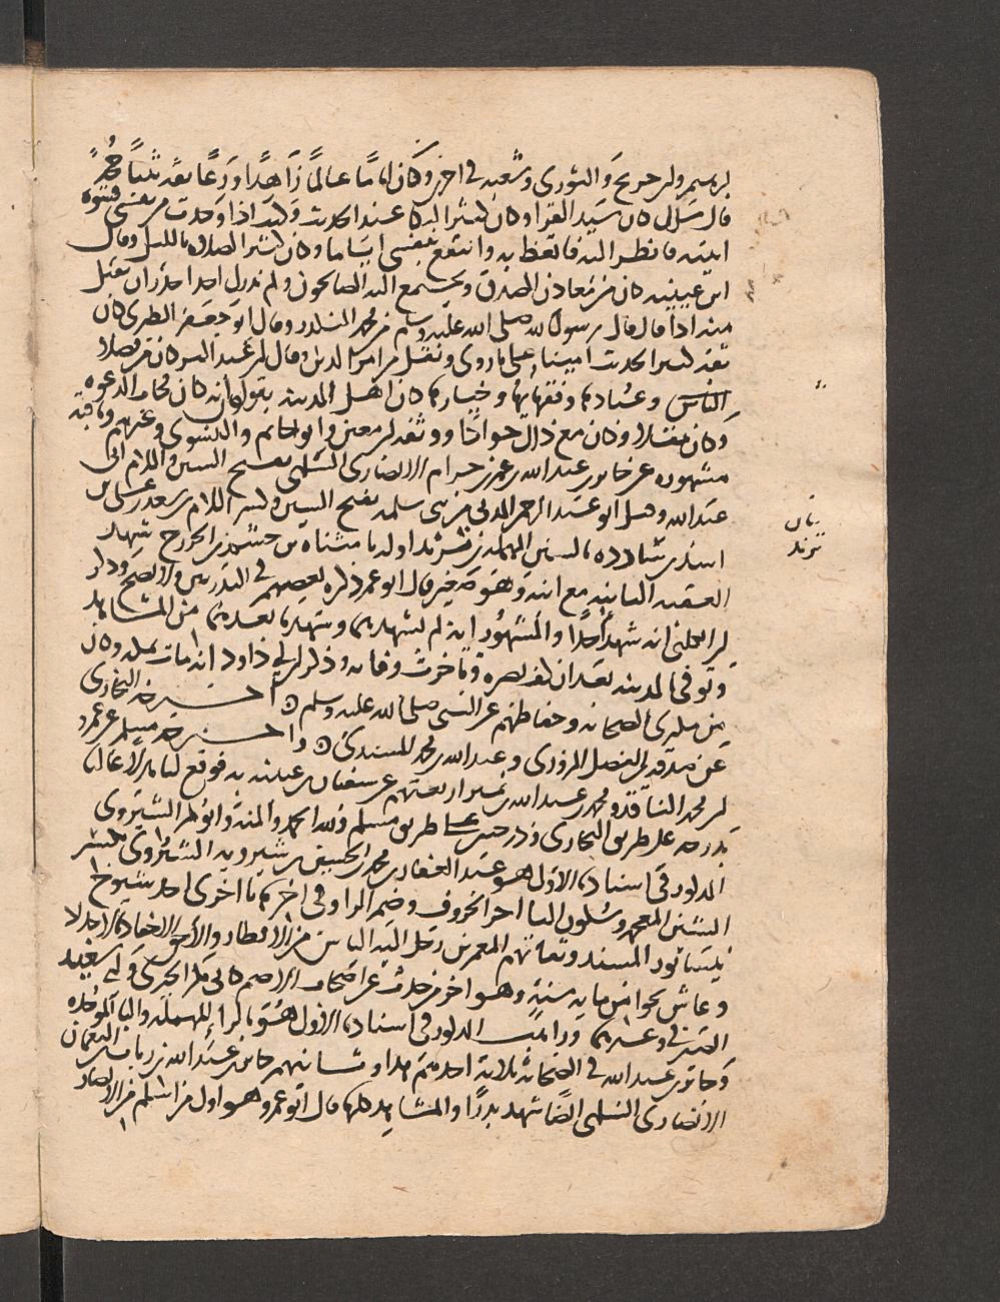 ابن جريج والثوري وشعبة في آخرين وكان إماما عالما زاهدا ورعا ثقة ثبتا حجة
قال مالك كان سيد القرا وكان كثير البكا عند الحديث وكنت اذا وجدت من نفسي قسوة
اتيته فانظر اليه فاتعظ به وانتفع بنفسي اياما وكان كثير الصلاة بالليل وقال
ابن عيينه كان من معادن الصدق ويجتمع اليه الصالحون ولم ندرك احدا اجدر ان يقبل
منه اذا قال قال رسول الله صلى الله عليه وسلم من محمد المنكدر وقال ابو جعفر الطبري كان
ثقة كثير الحديث امينا على ما روى ونقل من امر الدين وقال ابن عبد البر كان من فضلا
الناس وعبادها وفقهايها وخيارها كان اهل المدينة يقولون انه كان مجاب الدعوة
وكان مقلا وكان مع ذلك جوادا ووثقه ابن معين وابو حاتم والنسوي وغيرهم ومناقبه
مشهورة عن جابر بن عبد الله بن عمرو بن حرام الانصاري السلمي بفتح السين واللام ابي
عبد الله وقيل ابو عبد الرحمن المدني من بني سلمة بفتح السين وكسر اللام بن سعد بن علي بن
اسد بن شاردة بالسين المهملة بن تزيد اوله تا مثناة بن جشم بن الخزرج شهد
العقبة الثانية مع ابيه وهو صغير قال ابو عمر ذكره بعضهم في البدريين ولا يصح وذكر
ابن الكلبي انه شهد أحدا والمشهور انه لم يشهدهما وشهد ما بعدهما من المشاهد
وتوفي بالمدينة بعد ان كف بصره وتاخرت وفاته وذكر ابن ابي داود انه مات بمكة وكان
من مكثري الصحابة وحفاظهم عن النبي صلى الله عليه وسلم ۞ اخرجه البخاري
عن صدقة بن الفضل المروزي وعبد الله بن محمد المسندي ۞ واخرجه مسلم عن عمرو
بن محمد الناقد ومحمد بن عبد الله بن نمير اربعتهم عن سفيان بن عيينه به فوقع لنا بدلا عاليا
بدرجة على طريق البخاري ودرجتين على طريق مسلم ولله الحمد والمنة وابو بكر الشيروي
المذكور في اسناده الاول هو عبد الغفار بن محمد بن الحسين بن شيرويه الشيروي بكسر
الشين المعجمه وسكون اليا اخر الحروف وضم الرا وفي اخره يا اخرى احد شيوخ
نيسابور المسند وثقاتهم المعمرين رحل اليه الناس من الاقطار والحق الاحفاد بالاجداد
وعاش نحوا من ماية سنة وهو اخر من حدث عن اصحاب الاصم كابي بكر الحيري وابي سعيد
الصيرفي وغيرهما ورئاب المذكور في اسناده الاول هو بالراء المهملة واليا الموحدة
وجابر بن عبد الله في الصحابة ثلاثة احدهم هذا وثانيهم جابر بن عبد الله بن رياب بن النعمان
الانصاري السلمي ايضا شهد بدرا والمشاهد كلها قال ابو عمر وهو اول من اسلم من الانصار